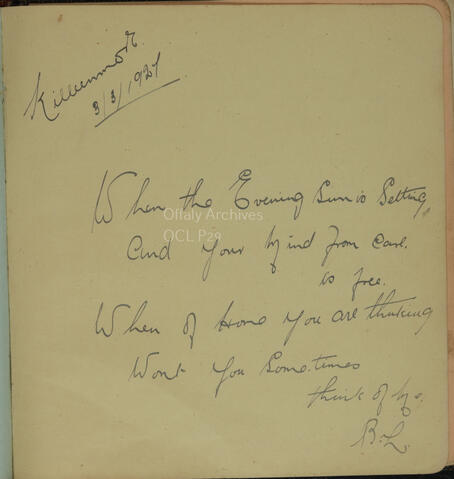 Killeenmore
3/3/1927
When the Evening Sun is Setting
And your Mind from Care.
is free.
When of Home You are thinking
Wont You Sometimes
think of Me.
B.L.
Offaly Archives
OCL P29